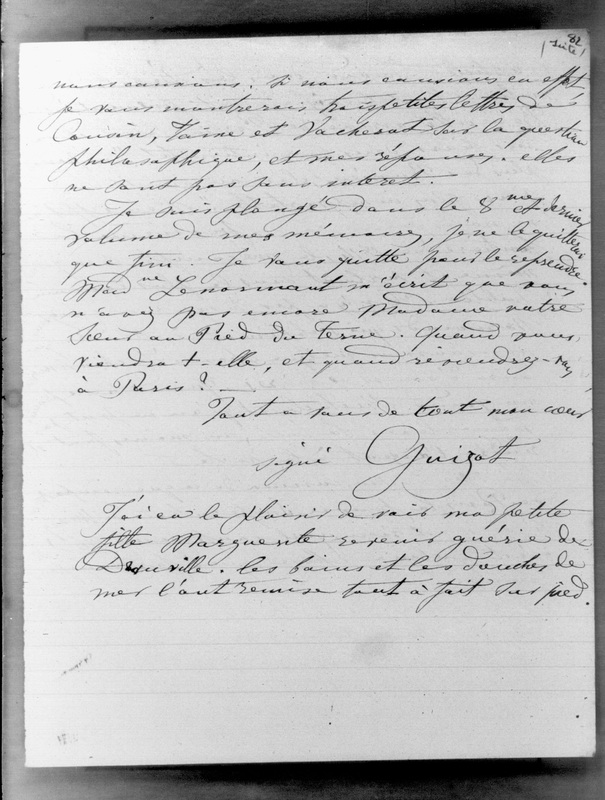 82
(suite)
nous causions. Si nous causions en effet
je vous montrerais trois petites lettres de
Cousin, Taine et Vacherot sur la question
philosophique, et mes réponses. elles
ne sont pas sans interet.
Je suis plongé dans le 8me et dernier
volume de mes mémoires, je ne le quitterai
que fini. Je vous quitte pour le reprendre.
Madme Lenormant m'écrit que vous
n'avez pas encore Madame votre
Sœur au Pied du terne. Quand vous
viendra t-elle, et quand reviendrez-vous
à Paris? —
Tout a vous de tout mon cœur
signé Guizot
J'ai eu le plaisir de voir ma petite
fille Marguerite revenir guérie de
Trouville. les bains et les douches de
mer l'ont remise tout à fait sur pied.